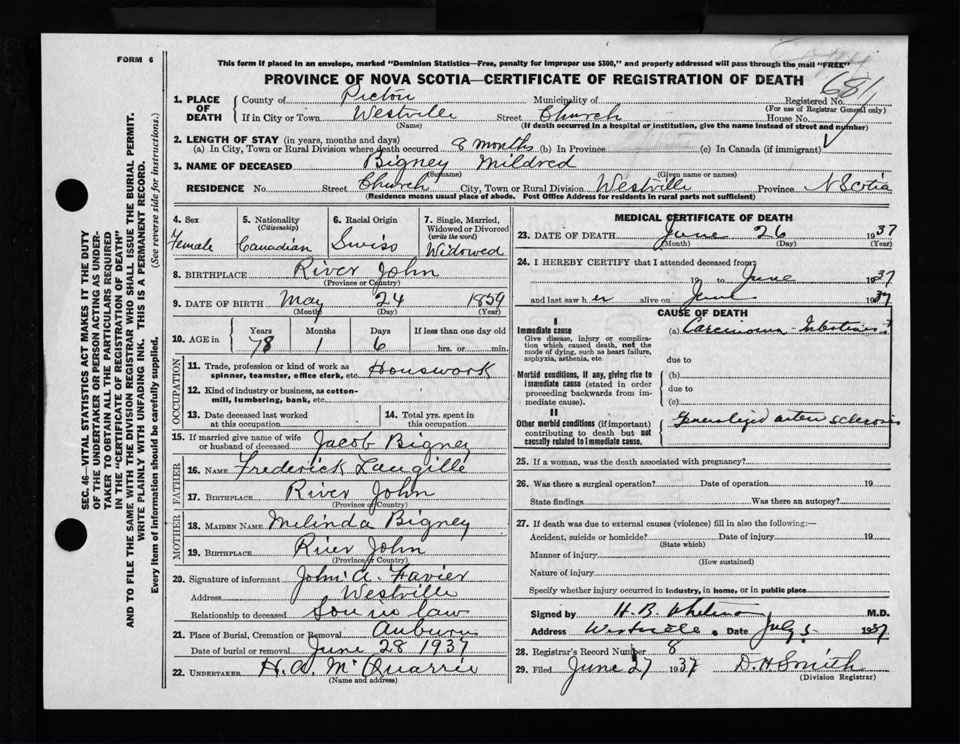 FORM 6
This form if placed in an envelope, marked "Dominion Statistics—Free, penalty for improper use $300," and properly addressed will pass through the mail "FREE"
PROVINCE OF NOVA SCOTIA—CERTIFICATE OF REGISTRATION OF DEATH
681
1. PLACE OF DEATH County of Pictou Municipality of Registered No.
(For use of Registrar General only)
If in City or Town Westville Street Church House No.
(Name) (If death occurred in a hospital or institution, give the name instead of street and number)
2. LENGTH OF STAY (in years, months and days)
(a) In City, Town or Rural Division where death occurred 8 months (b) In Province (c) In Canada (if immigrant)
3. NAME OF DECEASED Bigney Mildred
(Surname) (Given name or names)
RESIDENCE No. Street Church City, Town or Rural Division Westville Province N Scotia
(Residence means usual place of abode. Post Office Address for residents in rural parts not sufficient)
4. Sex Female
5. Nationality (Citizenship) Canadian
6. Racial Origin Swiss
7. Single, Married, Widowed or Divorced (write the word) Widowed
8. BIRTHPLACE River John
(Province or Country)
9. DATE OF BIRTH May 24 1859
(Month) (Day) (Year)
10. AGE in Years Months Days If less than one day old
78 1 6 hrs. or min.
OCCUPATION
11. Trade, profession or kind of work as spinner, teamster, office clerk, etc. Houswork
12. Kind of industry or business, as cotton-mill, lumbering, bank, etc.
13. Date deceased last worked at this occupation
14. Total yrs. spent in this occupation
15. If married give name of wife or husband of deceased Jacob Bigney
FATHER
16. NAME Frederick Langille
17. BIRTHPLACE River John
(Province or Country)
MOTHER
18. MAIDEN NAME Milinda Bigney
19. BIRTHPLACE River John
(Province or Country)
20. Signature of informant John A. Favier
Address Westville
Relationship to deceased Son in law
21. Place of Burial, Cremation or Removal Auburn
Date of burial or removal June 28 1937
22. UNDERTAKER H. A. McQuarrie
(Name and address)
MEDICAL CERTIFICATE OF DEATH
23. DATE OF DEATH June 26 1937
(Month) (Day) (Year)
24. I HEREBY CERTIFY that I attended deceased from
19 to June 1937
and last saw her alive on June 1937
CAUSE OF DEATH
I
Immediate cause
Give disease, injury or complication which caused death, not the mode of dying, such as heart failure, asphyxia, asthenia, etc
(a) Carcinoma - Intestines ?
due to
Morbid conditions, if any, giving rise to immediate cause (stated in order proceeding backwards from immediate cause).
(b)
due to
(c)
II
Other morbid conditions (if important) contributing to death but not causally related to immediate cause.
Generalized arterio sclerosis
25. If a woman, was the death associated with pregnancy?
26. Was there a surgical operation? Date of operation 19
State findings Was there an autopsy?
27. If death was due to external causes (violence) fill in also the following:—
Accident, suicide or homicide? Date of injury 19
(State which)
Manner of injury
(How sustained)
Nature of injury
Specify whether injury occurred in industry, in home, or in public place
Signed by H. B. Whitman M.D.
Address Westville. Date July 5 1937
28. Registrar's Record Number 8
29. Filed June 27 1937 D. H Smith
(Division Registrar)
SEC. 46—VITAL STATISTICS ACT MAKES IT THE DUTY
OF THE UNDERTAKER OR PERSON ACTING AS UNDER-
TAKER TO OBTAIN ALL THE PARTICULARS REQUIRED
IN THE "CERTIFICATE OF REGISTRATION OF DEATH"
AND TO FILE THE SAME WITH THE DIVISION REGISTRAR WHO SHALL ISSUE THE BURIAL PERMIT.
WRITE PLAINLY WITH UNFADING INK. THIS IS A PERMANENT RECORD.
Every item of information should be carefully supplied. (See reverse side for instructions.)